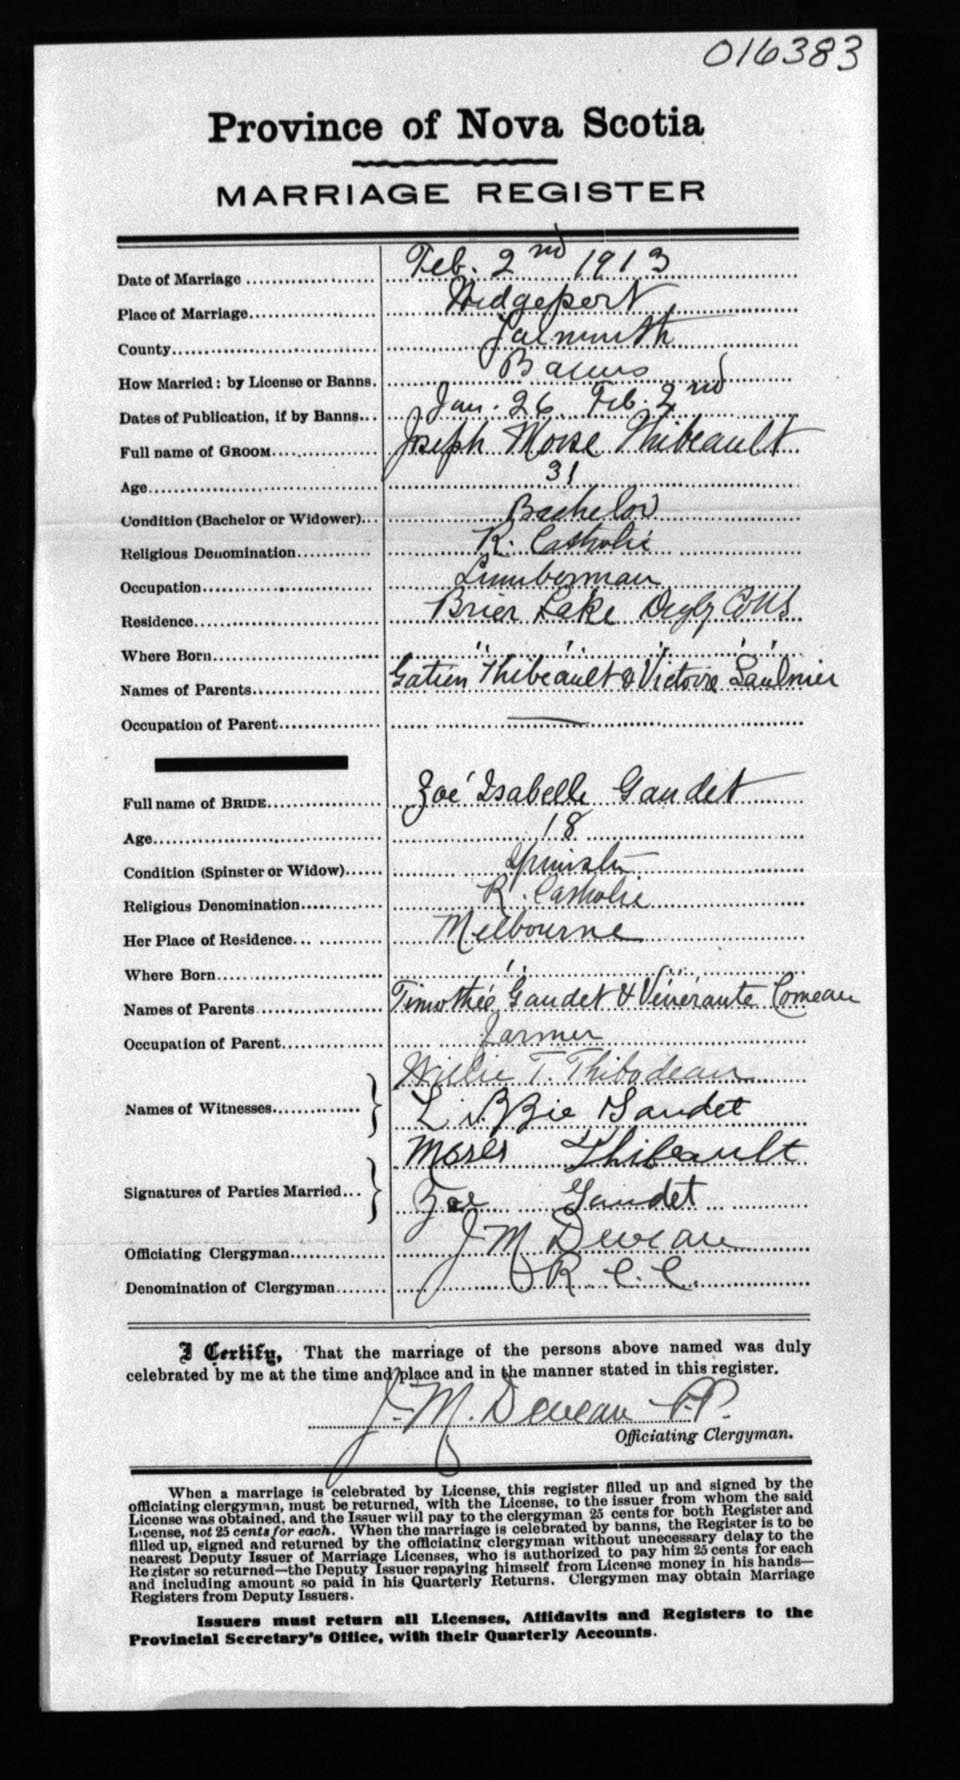 016383
Province of Nova Scotia
MARRIAGE REGISTER
Date of Marriage Feb. 2nd 1913
Place of Marriage Wedgeport
County Yarmouth
How Married: by License or Banns. Banns
Dates of Publication, if by Banns Jan. 26 Feb. 2nd
Full name of GROOM Joseph Moise Thibeault
Age 31
Condition (Bachelor or Widower) Bachelor
Religious Denomination R. Catholic
Occupation Lumberman
Residence Brier Lake Digby Co NS
Where Born " " " " "
Names of Parents Gatien Thibeault & Victoire Saulnier
Occupation of Parent —
Full name of BRIDE Zoé Isabelle Gaudet
Age 18
Condition (Spinster or Widow) Spinster
Religious Denomination R. Catholic
Her Place of Residence Melbourne
Where Born " "
Names of Parents Timothée Gaudet & Vénérante Comeau
Occupation of Parent Farmer
Names of Witnesses Willie T. Thibodeau
Libbie Gaudet
Signatures of Parties Married Moses Thibeault
Zoe Gaudet
Officiating Clergyman J M Deveau
Denomination of Clergyman R. C. C.
I Certify, That the marriage of the persons above named was duly
celebrated by me at the time and place and in the manner stated in this register.
J. M. Deveau P.P.
Officiating Clergyman.
When a marriage is celebrated by License, this register filled up and signed by the
officiating clergyman, must be returned, with the License, to the issuer from whom the said
License was obtained, and the Issuer will pay to the clergyman 25 cents for both Register and
License, not 25 cents for each. When the marriage is celebrated by banns, the Register is to be
filled up, signed and returned by the officiating clergyman without unecessary delay to the
nearest Deputy Issuer of Marriage Licenses, who is authorized to pay him 25 cents for each
Register so returned—the Deputy Issuer repaying himself from License money in his hands—
and including amount so paid in his Quarterly Returns. Clergymen may obtain Marriage
Registers from Deputy Issuers.
Issuers must return all Licenses, Affidavits and Registers to the
Provincial Secretary's Office, with their Quarterly Accounts.